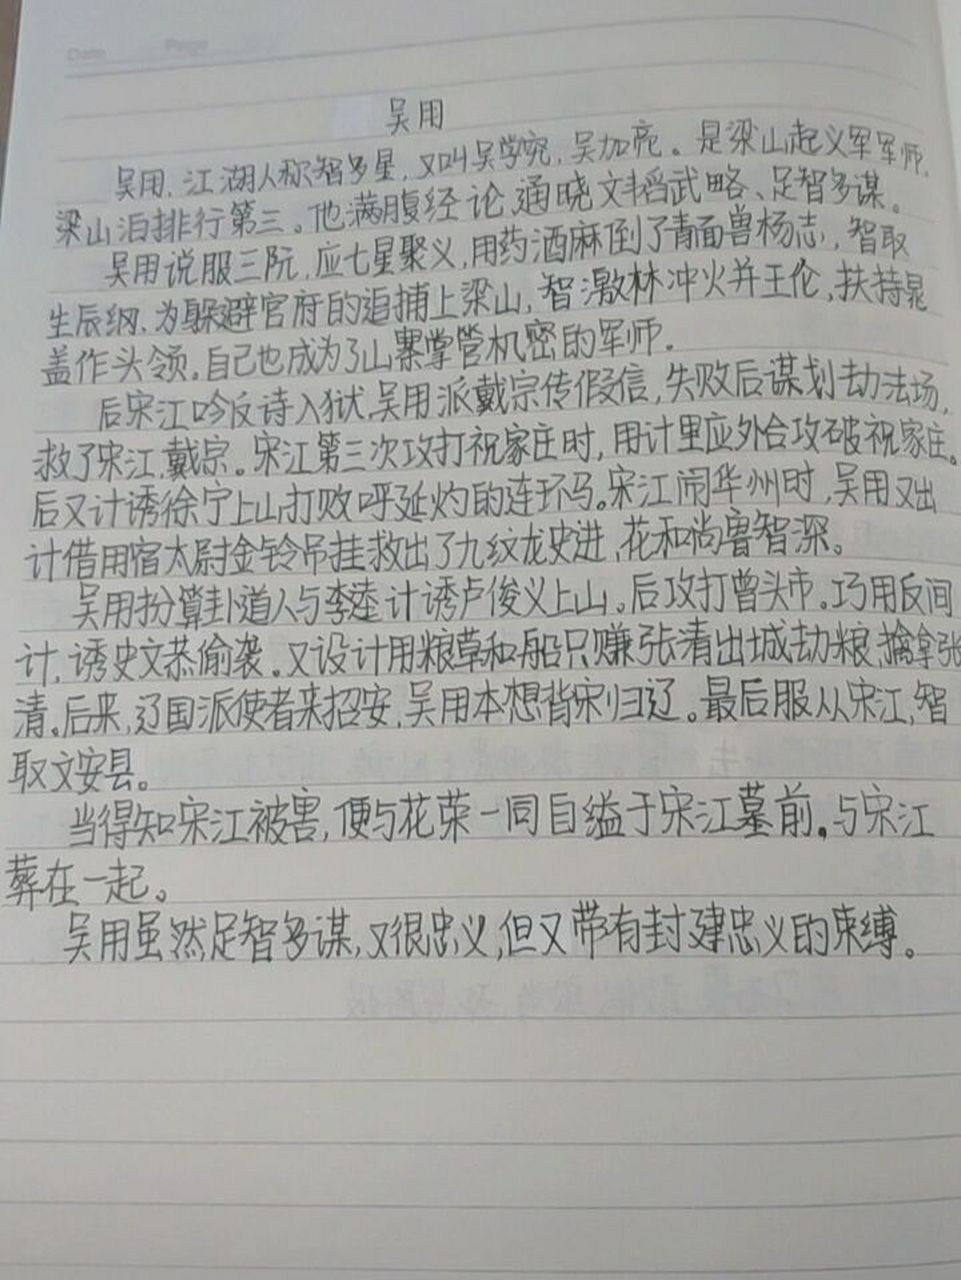 Date Page
吴用
吴用,江湖人称智多星,又叫吴学究,吴加亮。是梁山起义军军师,
梁山泊排行第三。他满腹经论,通晓文韬武略、足智多谋。
吴用说服三阮,应七星聚义,用药酒麻倒了青面兽杨志,智取
生辰纲,为躲避官府的追捕上梁山,智激林冲火并王伦,扶持晁
盖作头领,自己也成为了山寨掌管机密的军师。
后宋江吟反诗入狱,吴用派戴宗传假信,失败后谋划劫法场,
救了宋江,戴宗。宋江第三次攻打祝家庄时,用计里应外合攻破祝家庄。
后又计诱徐宁上山打败呼延灼的连环马。宋江闹华州时,吴用又出
计借用宿太尉金铃吊挂救出了九纹龙史进,花和尚鲁智深。
吴用扮算卦道人与李逵计诱卢俊义上山。后攻打曾头市。巧用反间
计,诱史文恭偷袭。又设计用粮草和船只赚张清出城劫粮,擒拿张
清。后来,辽国派使者来招安,吴用本想背宋归辽。最后服从宋江,智
取文安县。
当得知宋江被害,便与花荣一同自缢于宋江墓前。与宋江
葬在一起。
吴用虽然足智多谋,又很忠义,但又带有封建忠义的束缚。